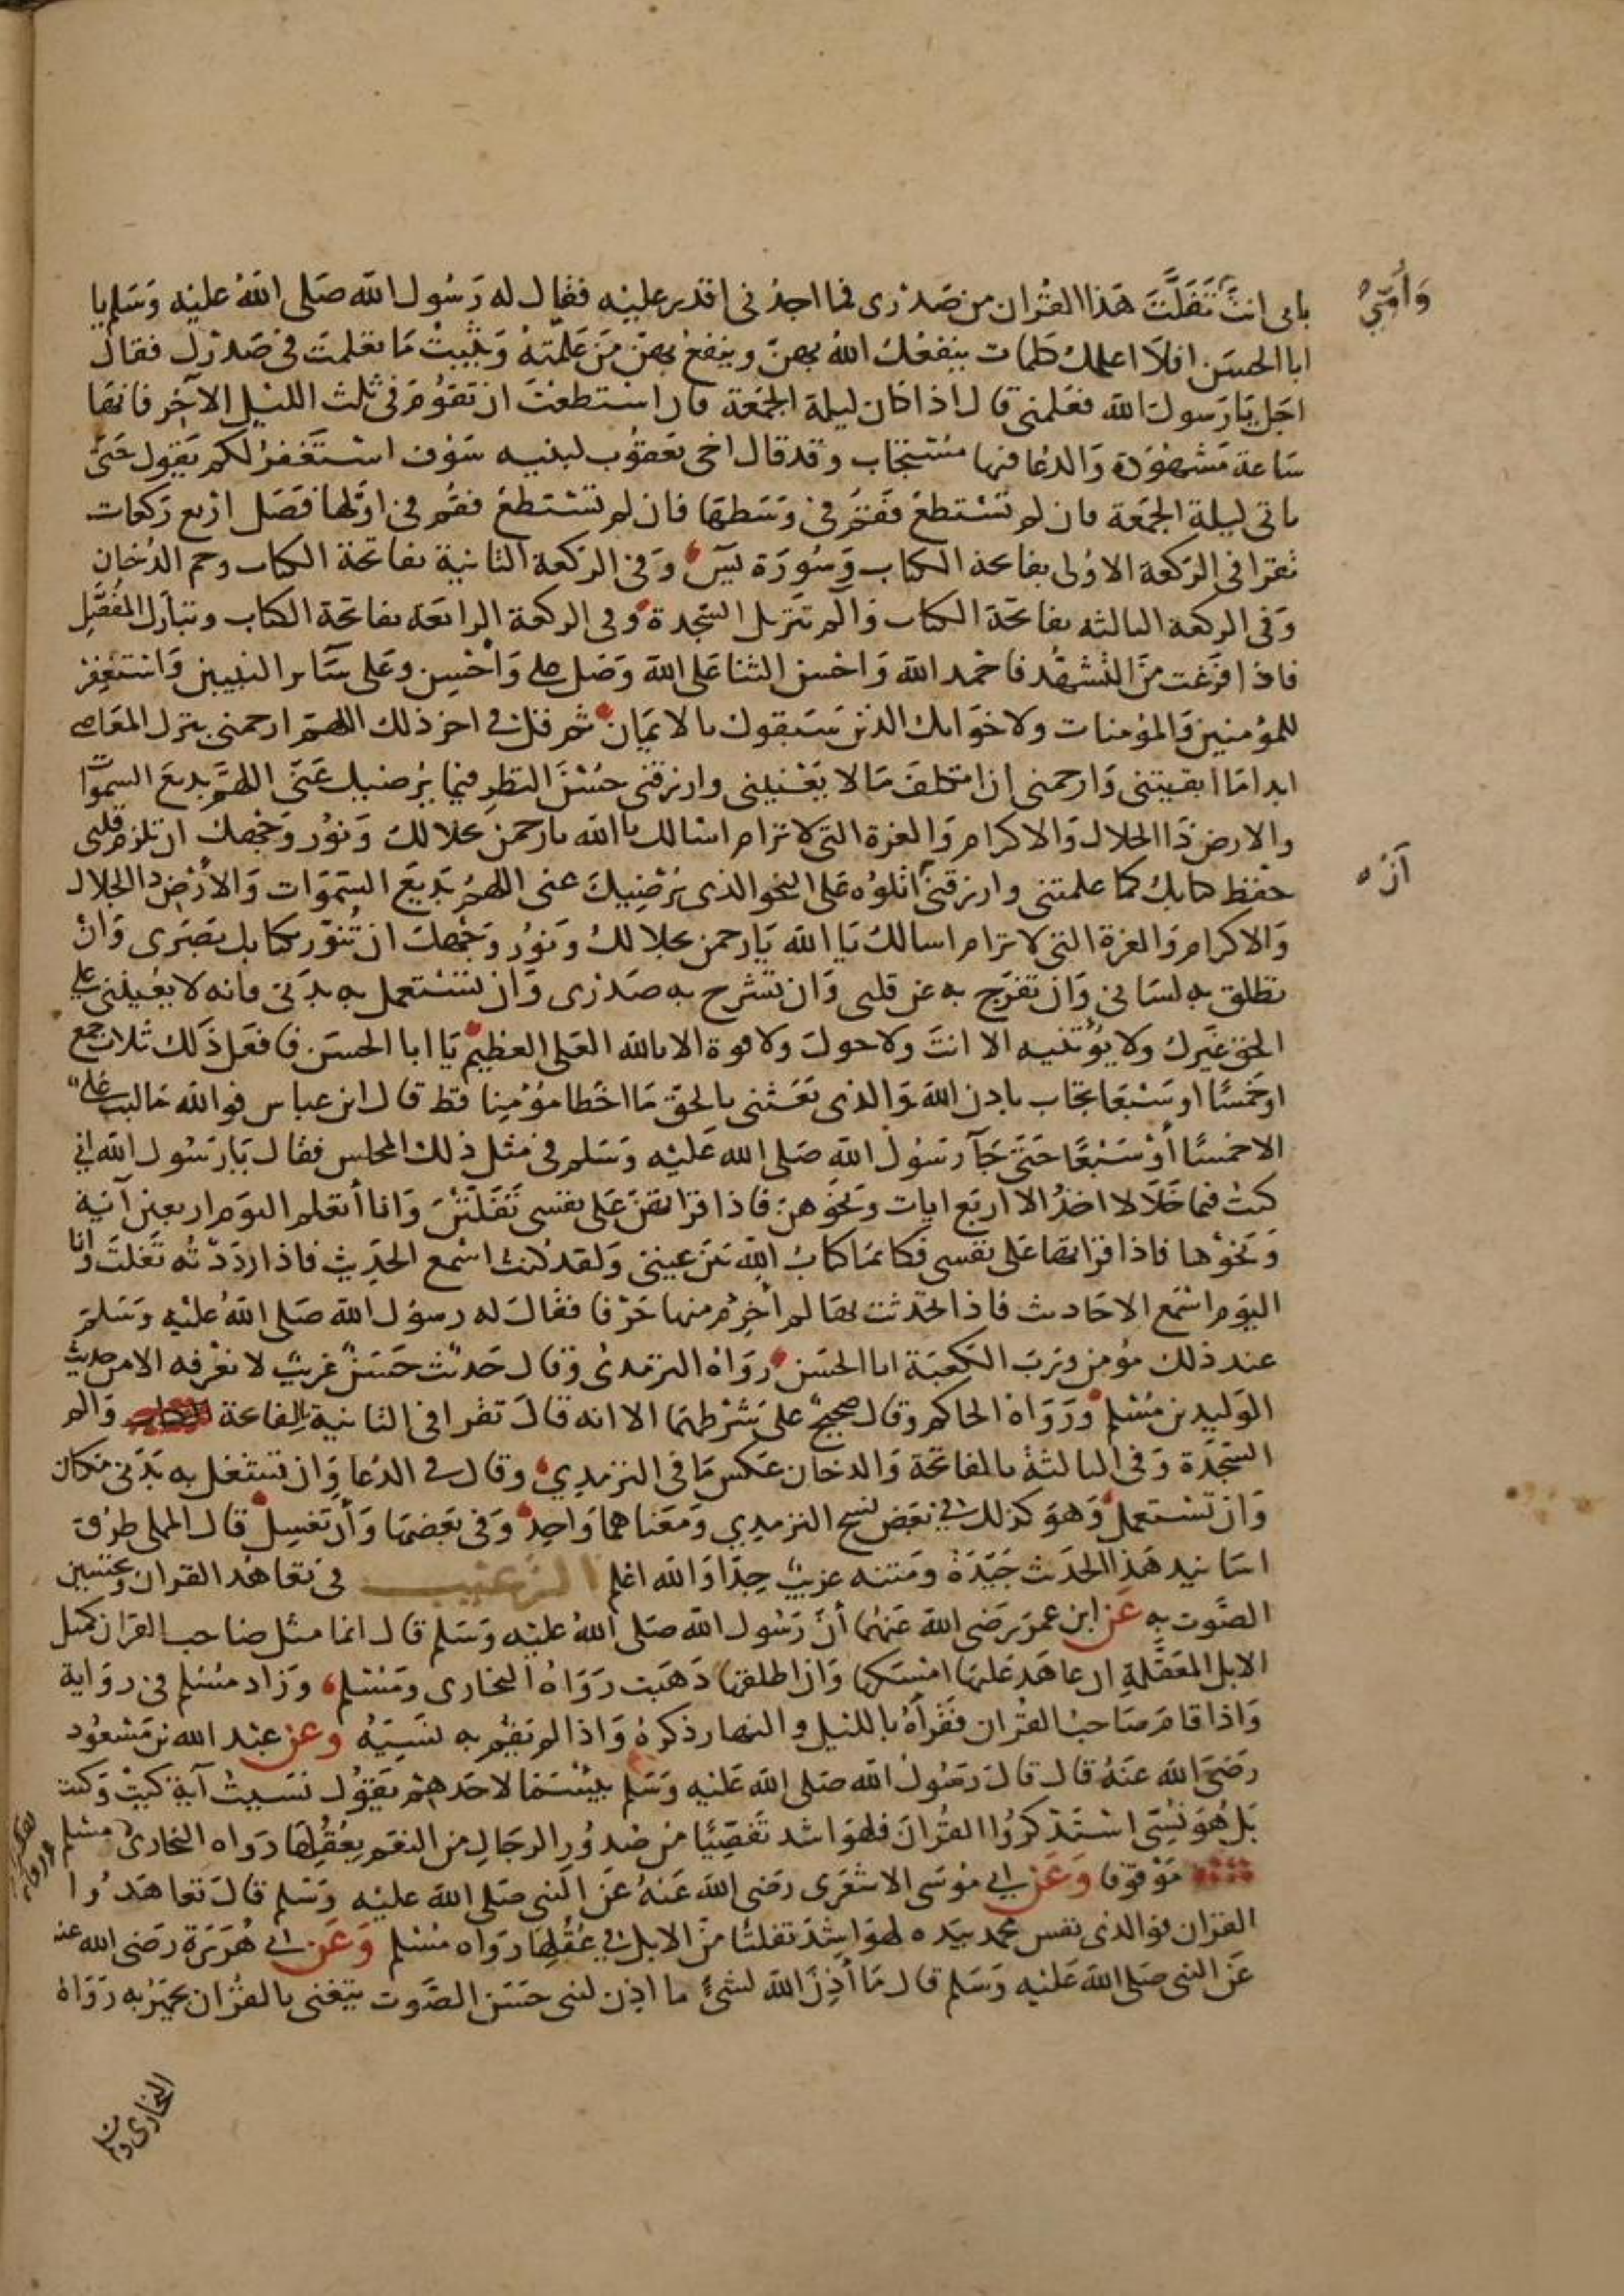 وَأُمِّي
بابى انتَ تَفَلَّتَ هَذا القُران من صَدْرى فما اجدُ نى اقدر عليْه فقال له رَسُول الله صَلى اللهُ عليْه وَسَلم يا
ابا الحسَن افلاَ اعلمك كلمات ينفعُك اللهُ بهنّ وينفعُ بهنّ مَن عَلّمتَهُ وَيُثَبِّتْ مَا تعَلمتَ فى صَدْرِك فقال
اجَل يَا رَسول الله فعَلمنى قال اذا كان ليلة الجمُعَة فان اسْتطعْتَ ان تقوُمَ فى ثلث الليْل الآخِر فانهَا
سَاعة مَشهُوْدَة وَالدعَا فيها مُسْتجَاب وقد قال اخى يَعقوُب لبنيه سَوْف استَغفرُ لكم يَقول حَتى
تاتى ليلة الجمُعَة فان لم تَسْتطعْ فَقمُ فى وَسَطهَا فان لم تسْتَطعْ فقُم فى اوّلها فَصَل ارْبع رَكعات
تقرا فى الرَكعَة الاوُلى بفاتحة الكتاب وَسُورَة يسَ وَفى الركعة الثانية بفاتحَة الكتاب وحم الدُخان
وَفى الركعة الثالثه بفاتحَة الكتاب وَالم تَنزيل السّجدة وفى الركعة الرابعَة بفاتحَة الكتاب وتبَارَك المُفَصَّل
فاذا فرَغت مِنَ التشهُّد فاحْمد الله وَاحْسِن الثنا عَلى الله وَصَل على وَاحْسِن وعَلى سَائر النبيين وَاسْتغفِرْ
للمؤمنينَ وَالمؤمنات ولاخوَانك الذين سَبَقوك بالايمَان ثم قل فى اخر ذلك اللهمّ ارحمنى بترك المعَاصى
ابدا مَا ابقيتنى وَارحمنى ان اتكلفَ مَالا يَعْنينى وارزقنى حُسْنَ النظر فيما يُرضيك عَنى اللهمَّ بديعَ السموَات
والارض ذَا الجلال وَالاكرام وَالعزة التى لا ترام اسْالك يا الله يا رحمن بجلالك وَنوُر وَجْهك ان تلزم قلبى
حفظ كتابك كما علمتنى وارزقنى اتلوُه عَلى النحو الذى يُرْضِيكَ عنى اللهمّ بَديعَ السَّموَات وَالأرْض ذا الجلال
أن ه
وَالاكرام وَالعزة التى لا ترام اسالك يَا الله يَا رحمن بجلالك وَنوُر وَجْهك ان تُنوّر بكتابك بَصَرى وَانْ
تطلق به لسَانى وَان تفرّج به عَن قلبى وَان تشرح به صَدْرى وَان تسْتعمل به بدَنى فانه لا يُعيْننى على
الحق غَيرك ولا يُؤتيه الا انتَ ولا حولَ ولا قوة الا بالله العَلى العظيم يَا ابا الحسَن فافعَل ذَلك ثلاث جمع
اوخَمسًا او سَبْعَا تجَاب باذن الله وَالذى بَعَثنى بالحقّ مَا اخْطا مؤْمِنا قط قال ابن عباس فوالله مَا لبث علي
الا خمسًا أوْ سَبْعًا حَتى جَآ رَسُول الله صَلى الله عَليْه وَسَلم فى مثل ذلك المجلس فقال يَا رَسُول الله انى
كنتُ فيما خَلاَ لا اخذُ الا اربَع ايات وَنحَوهنّ فاذا قراتهن عَلى نفسى تَفلّتْنَ وَانا أتعَلم اليَوم اربعين آية
وَنحَوْها فاذا قراتها عَلى نفسى فكانما كتابُ الله بَين عينى وَلقد كنت اسْمع الحَدِيث فاذا ردَدْتُه تفلّتَ وانا
اليَوم اسْمَع الاحَاديث فاذا تحَدثت بهَا لم أخرِمْ منها حَرْفا فقالَ له رسوُل الله صَلى اللهُ عليْه وَسَلمَ
عند ذلك مؤمن وَربّ الكعبَة ابا الحسَن روَاهُ الترمدىُ وقال حَديْث حَسَنٌ غريبٌ لا نعْرفه الا من حديث
الوَليد بن مُسْلم وَرَوَاهُ الحاكم وقال صحيحٌ على شَرْطهمَا الا انه قالَ تقرا فى الثانية بالفاتحة وَالم
السّجَدة وَفى الثالثة بالفاتحَة وَالدخان عكسَ مَا فى الترمدي وقال فى الدُعا وَان تشتغل به بَدَنى مَكان
وَان تسْتعملَ وَهوَ كذلك فى بَعض نسخ الترمدي وَمَعناهما وَاحِدٌ وَفى بَعضهَا وَأن تغسِل قال المملى طرُق
اسَانيد هَذا الحَديث جَيّدَة ومَتنه غريبٌ جدًا وَالله اعْلم الترغيب فى تعَاهُد القران وَتحسين
الصَّوت به عَن ابن عمَر رَضى الله عَنهُما أنّ رَسُول الله صَلى اللهُ عليْه وَسَلم قال انما مثل صَاحب القرَان كمثل
الابل المعَقَّلةِ ان عاهَد عَليهَا امسَكها وَان اطلقهَا ذَهَبت رَوَاهُ البخارى ومُسْلم وَزاد مسْلم فى روَاية
وَاذا قامَ صَاحبُ القرُان فَقرَأهُ بالليْل والنهار ذكرهُ وَاذا لم يَقم به نَسِيَهُ وعن عبْد الله بن مَسْعوُد
رَضَى الله عَنهُ قال قالَ رَسُولُ الله صَلى الله عَليْه وَسَلم بئسَما لاحَدهمْ يَقوُل نسَيتُ آية كَيْتْ وَكيت
بَل هُوَ نُسِّىَ اسْتذكرُوا القرُانَ فلهوَ اشد تَفَصّيًا من صُدوُر الرجَال من النعَم بِعُقُلِهَا رَواه البخارىُ ومسْلم
مَوْقوفا وَعَن ابى موُسَى الاشعَرى رضى الله عَنهُ عَن النبى صَلى الله عليْه وَسَلم قالَ تعَاهَدُوا
القرَان فوالذى نفس محمد بيَده لهوَ اشدّ تفلتًا منَ الابل فى عُقُلِهَا رَواه مُسْلم وَعَن ابى هُرَيرَة رَضى الله عنه
عَن النبى صَلى الله عَليْه وَسَلم قال مَا أذِنَ الله لشئٍ ما اذِن لنبى حَسَن الصَّوت يتغنى بالقرُان يجهَرُ به رَوَاهُ
البخارى و